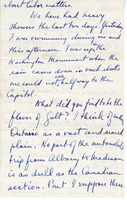 about labor matters.
We have had heavy
showers the last two days. Yesterday
I was swimming during one and
this afternoon I was up the
Washington Monument when the
rain came down in such sheets
we could not see halfway to the
Capitol.
What did you find to be the
flavor of Galt? I think of
Ontario as a vast and sacred
plain. No part of the automobile
trip from Albany to Madison
is as dull as the Canadian
section. But I suppose there